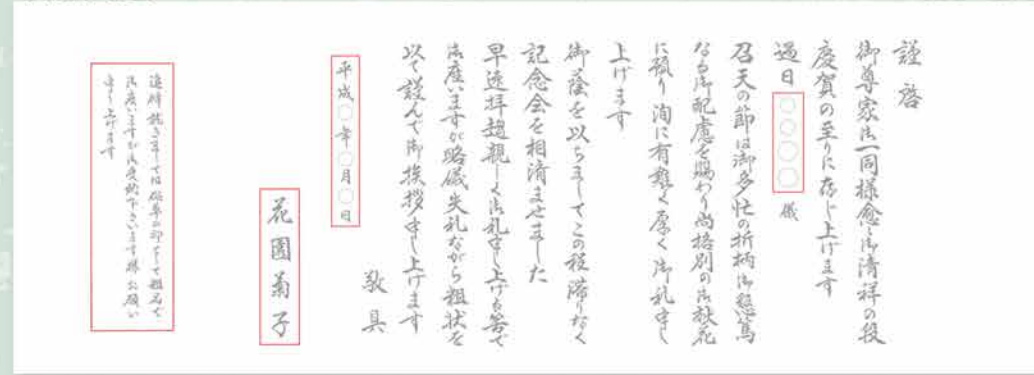 謹啓
御尊家御一同様愈々御清祥の段
慶賀の至りに存じ上げます
過日○○○○儀
召天の節は御多忙の折柄御懇篤
なる御配慮を賜わり尚格別の御献花
に預り洵に有難く厚く御礼申し
上げます
御蔭を以ちましてこの程滞りなく
記念会を相済ませました
早速拝趨親しく御礼申し上げる筈で
御座いますが略儀失礼ながら粗状を
以て謹んで御挨拶申し上げます
敬具
平成○年○月○日
花園菊子
追啓 就きましては供養の印までに粗品で
御座いますが御受納下さいます様お願い
申し上げます